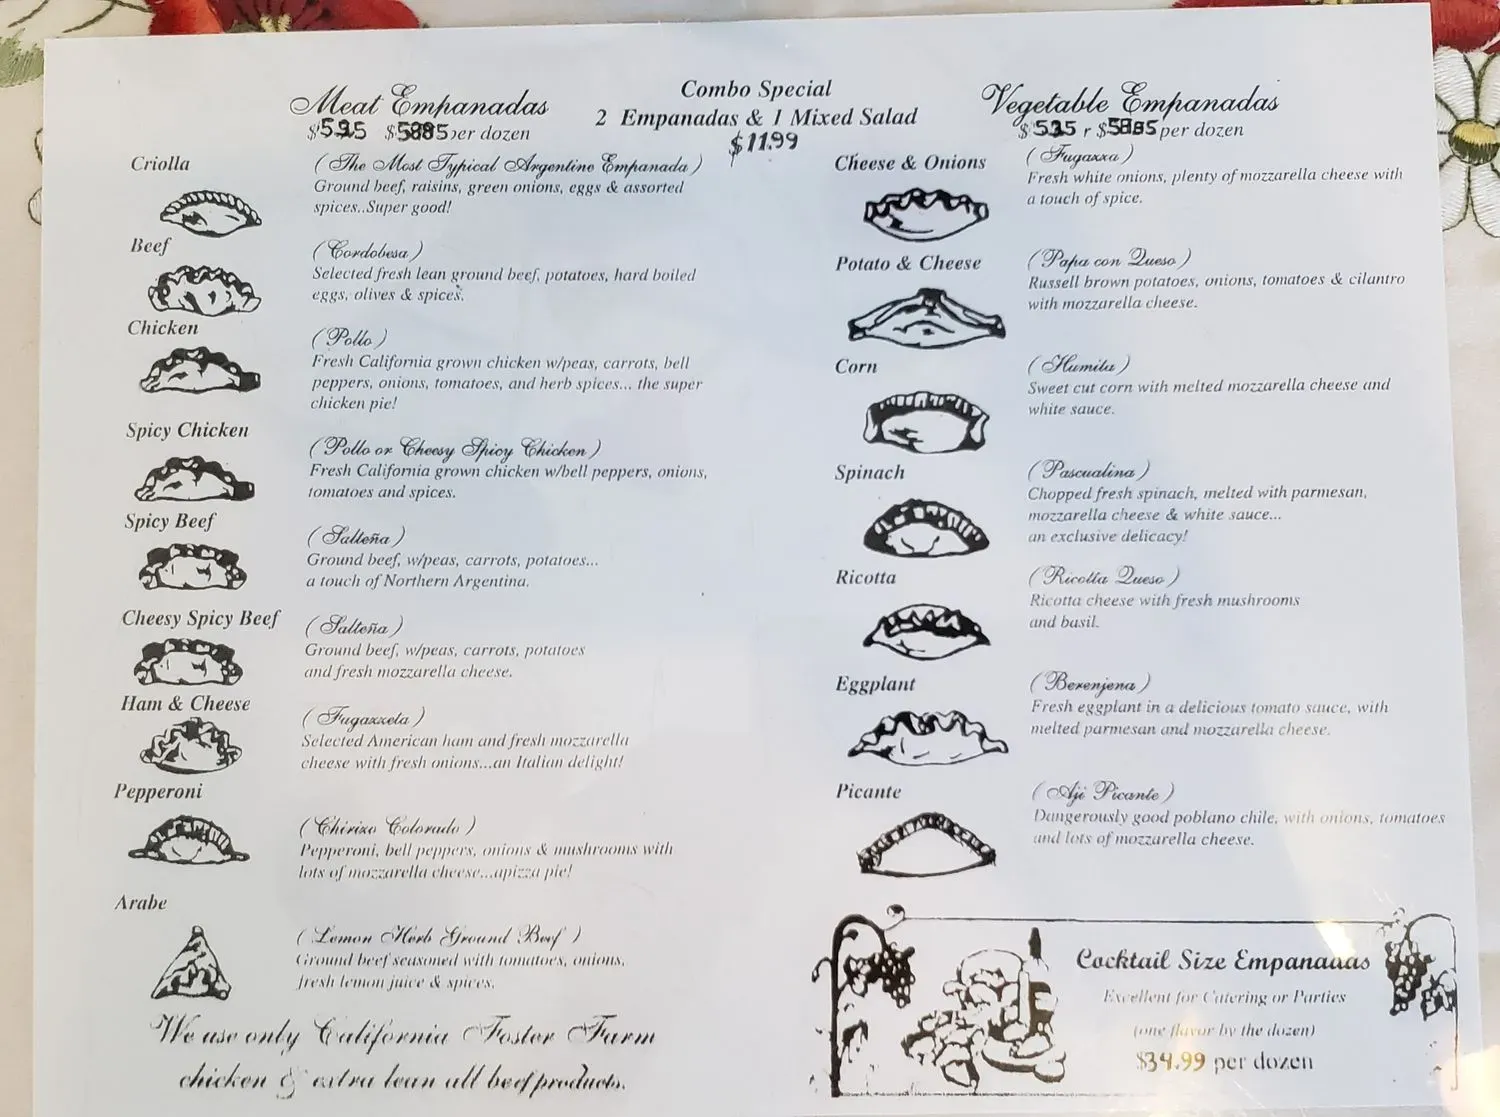 Meat Empanadas
per dozen
Combo Special
2 Empanadas & 1 Mixed Salad
$11.99
Vegetable Empanadas
per dozen
Criolla
( The Most Typical Argentine Empanada )
Ground beef, raisins, green onions, eggs & assorted
spices..Super good!
Beef
( Cordobesa )
Selected fresh lean ground beef, potatoes, hard boiled
eggs, olives & spices.
Chicken
( Pollo )
Fresh California grown chicken w/peas, carrots, bell
peppers, onions, tomatoes, and herb spices... the super
chicken pie!
Spicy Chicken
( Pollo or Cheesy Spicy Chicken )
Fresh California grown chicken w/bell peppers, onions,
tomatoes and spices.
Spicy Beef
( Salteña )
Ground beef, w/peas, carrots, potatoes...
a touch of Northern Argentina.
Cheesy Spicy Beef
( Salteña )
Ground beef, w/peas, carrots, potatoes
and fresh mozzarella cheese.
Ham & Cheese
( Fugazzeta )
Selected American ham and fresh mozzarella
cheese with fresh onions...an Italian delight!
Pepperoni
( Chirizo Colorado )
Pepperoni, bell peppers, onions & mushrooms with
lots of mozzarella cheese...apizza pie!
Arabe
( Lemon Herb Ground Beef )
Ground beef seasoned with tomatoes, onions,
fresh lemon juice & spices.
We use only California Foster Farm
chicken & extra lean all beef products.
Cheese & Onions
( Fugazza )
Fresh white onions, plenty of mozzarella cheese with
a touch of spice.
Potato & Cheese
( Papa con Queso )
Russell brown potatoes, onions, tomatoes & cilantro
with mozzarella cheese.
Corn
( Humita )
Sweet cut corn with melted mozzarella cheese and
white sauce.
Spinach
( Pascualina )
Chopped fresh spinach, melted with parmesan,
mozzarella cheese & white sauce...
an exclusive delicacy!
Ricotta
( Ricotta Queso )
Ricotta cheese with fresh mushrooms
and basil.
Eggplant
( Berenjena )
Fresh eggplant in a delicious tomato sauce, with
melted parmesan and mozzarella cheese.
Picante
( Aji Picante )
Dangerously good poblano chile, with onions, tomatoes
and lots of mozzarella cheese.
Cocktail Size Empanadas
Excellent for Catering or Parties
(one flavor by the dozen)
$34.99 per dozen